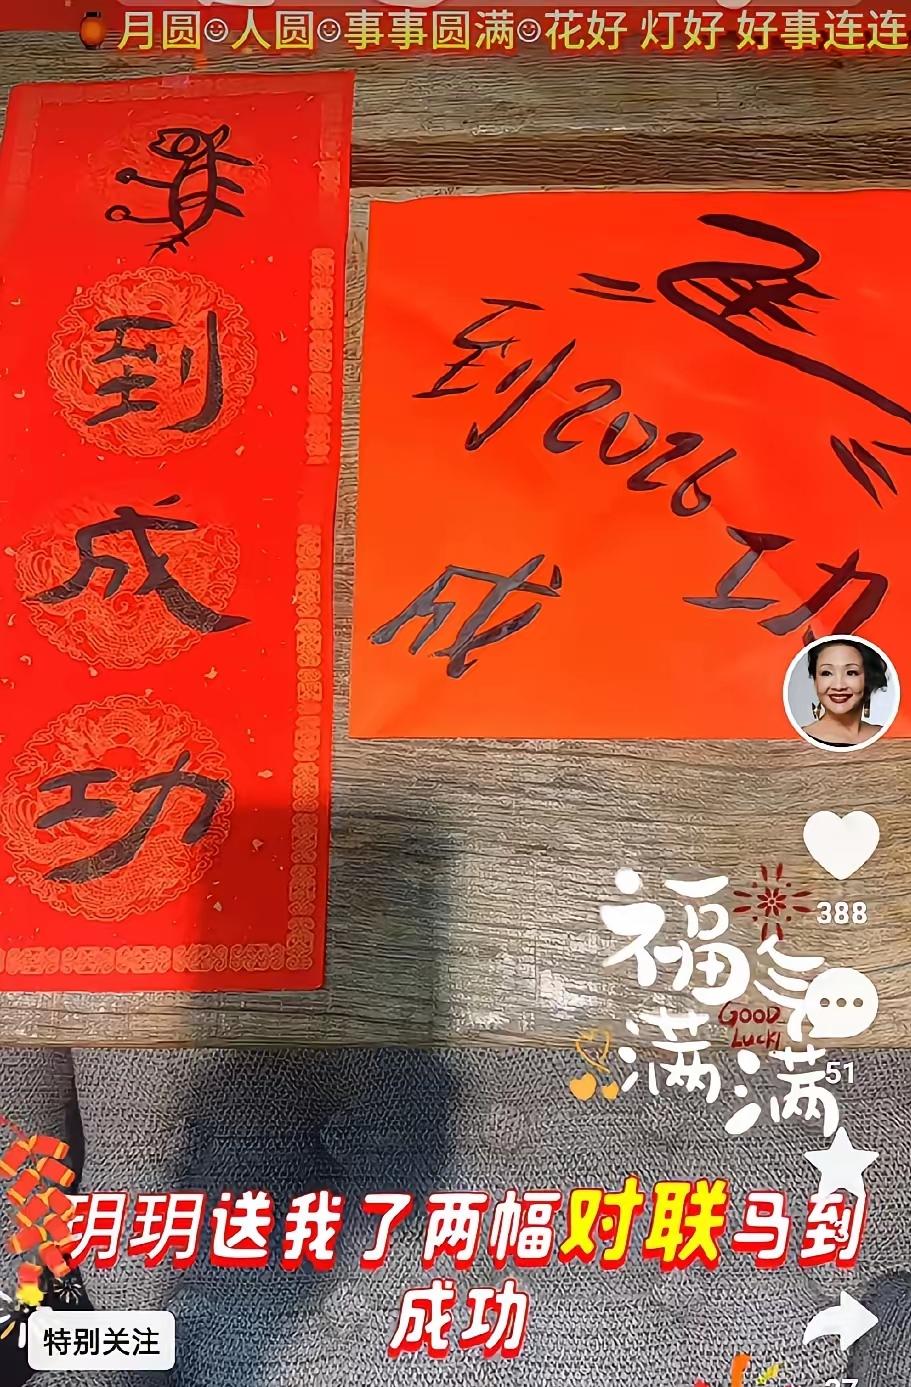 月圆人圆事事圆满花好 灯好 好事连连
到
成
功
到2026
成
工力
福
满满
GOOD
Luck!
388
51
玥玥送我了两幅对联马到
成功
特别关注